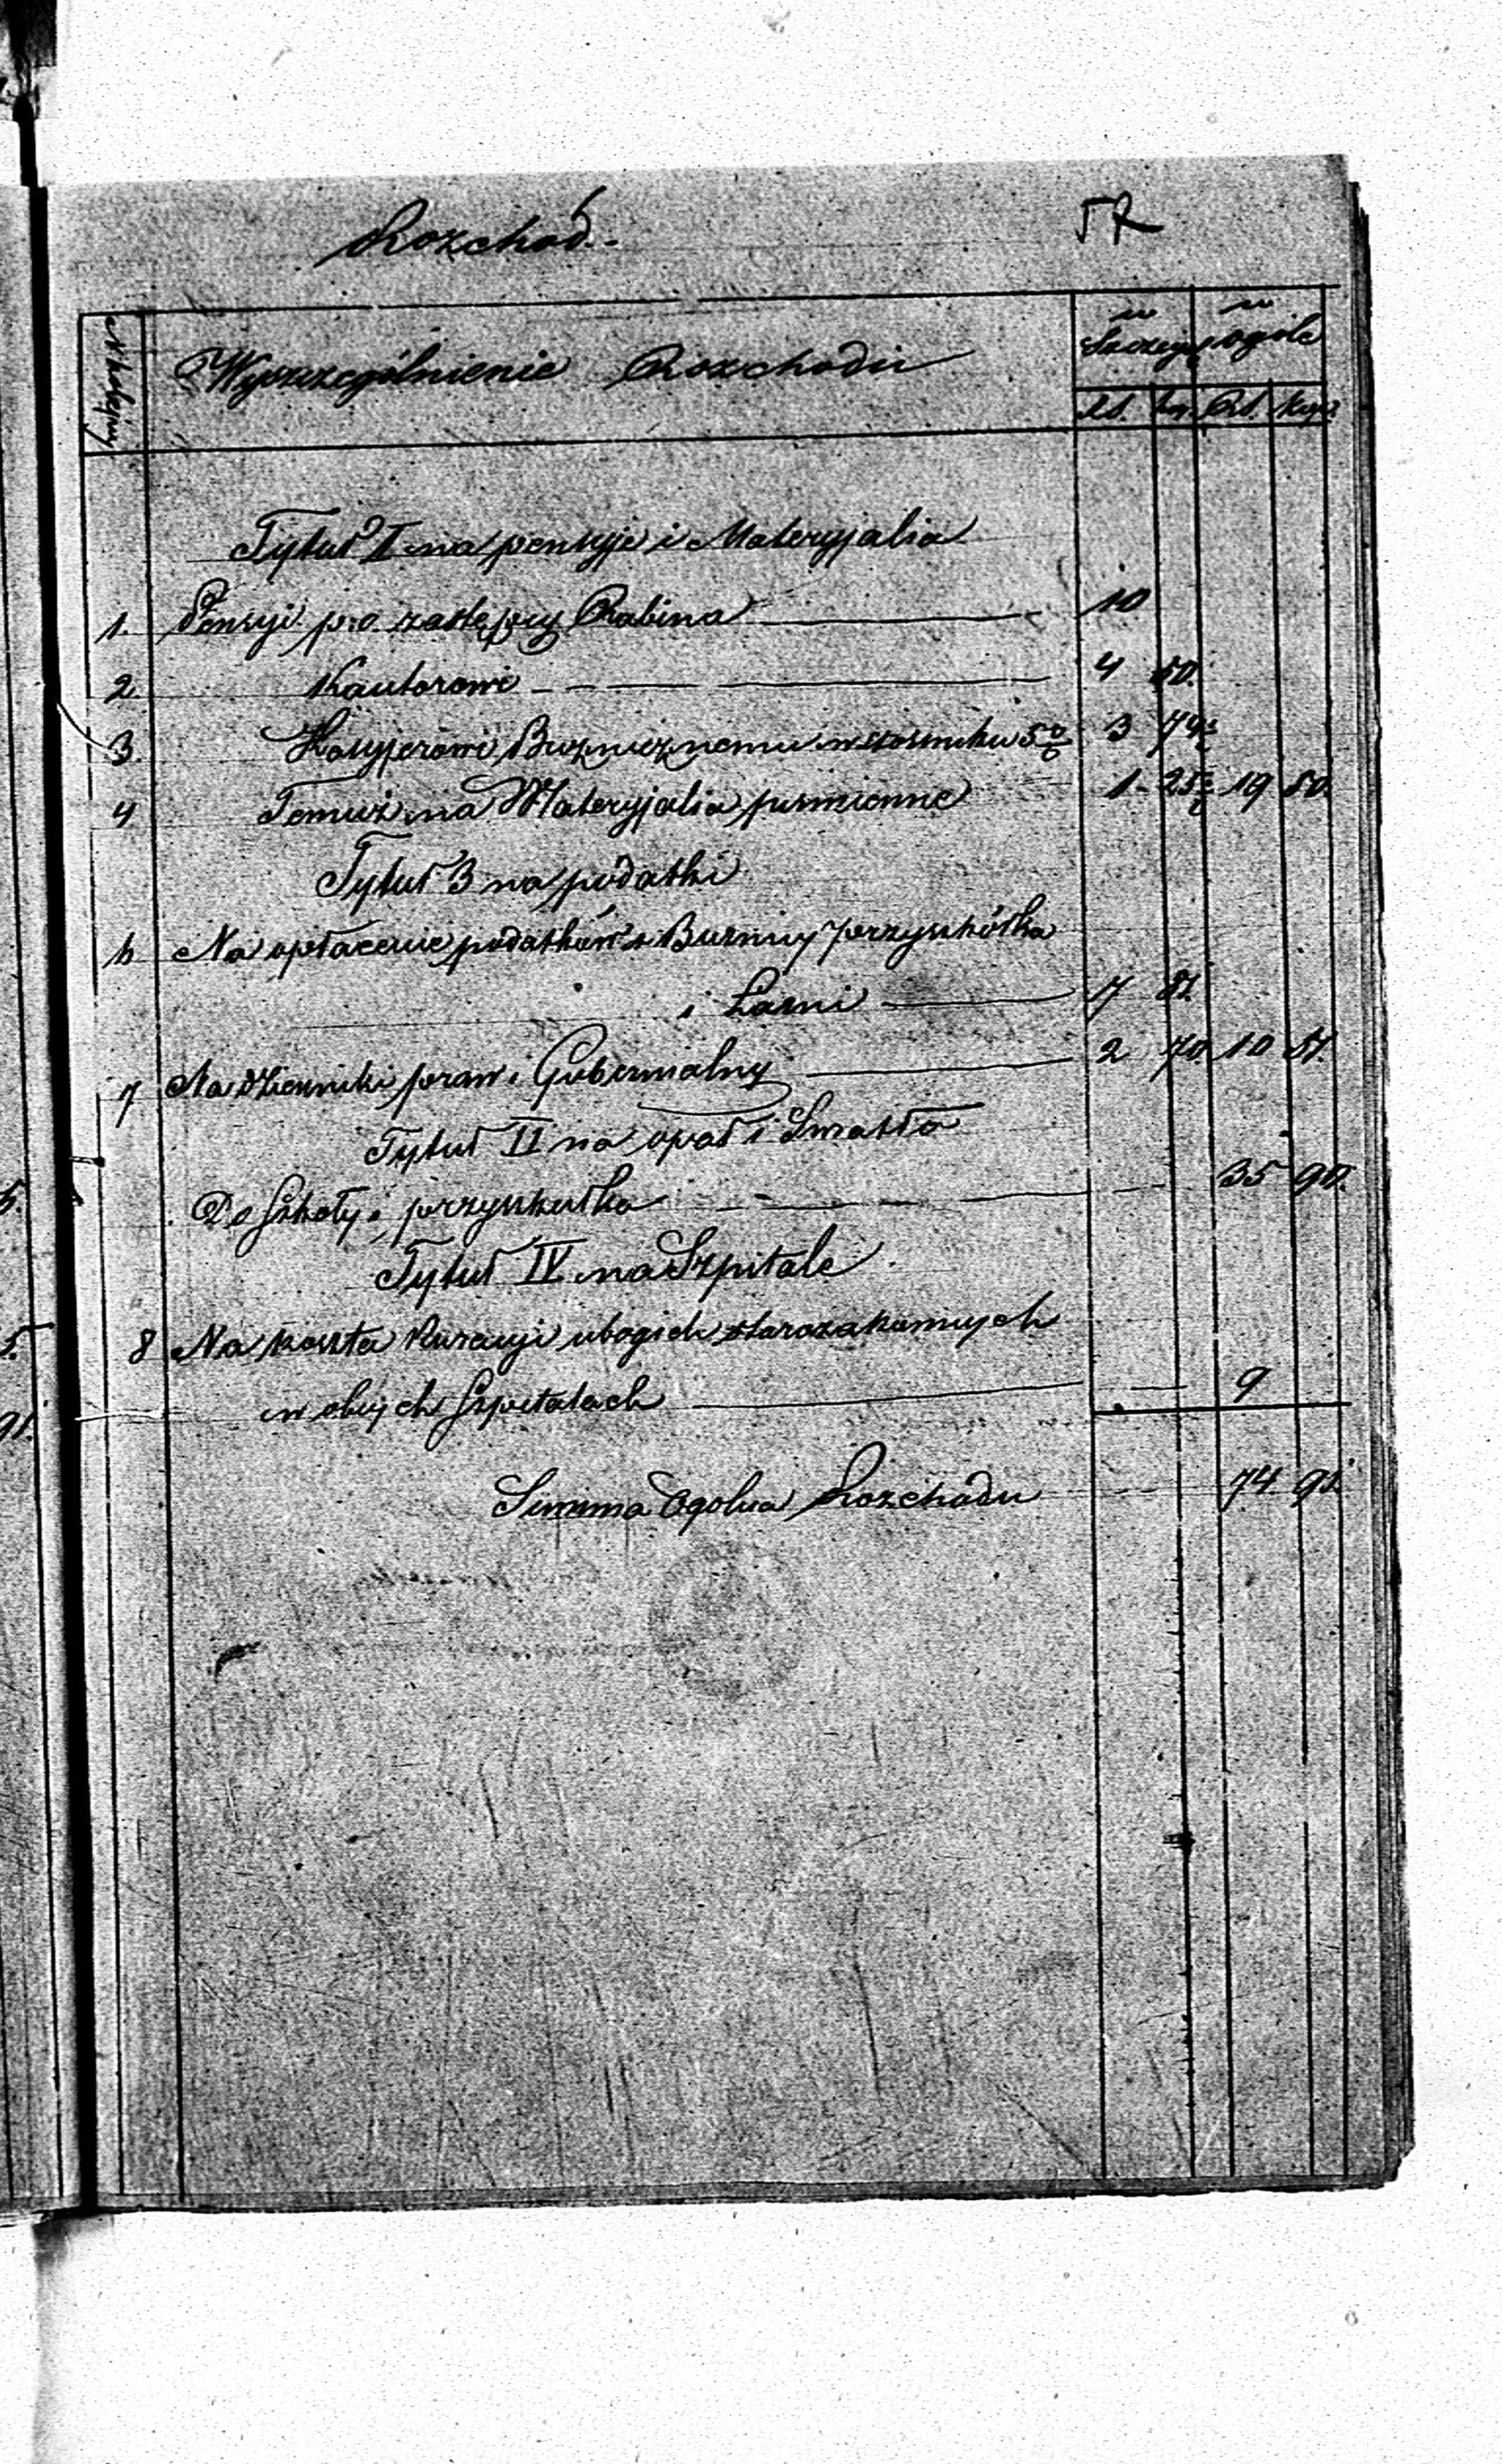 Rozchód.
57
N kolejny
Wyszczególnienie Rozchodu
w Szczeg. w ogóle
Rs. kop. Rs. Kop.
Tytuł I na pensyje i Materyjalia
1. Pensyi p.o. zastępcy Rabina 10
2 Kantorowi 4 50.
3. Kasyjerowi Buznieznemu w stosunku 5% 3 74½
4 Temuż na Materyjalia pismienne 1 25½ 19 50.
Tytuł 3 na podatki
6 Na opłacenie podatków z Buzniey przyszkółka
i Łazni 7 81.
7 Na dzienniki praw i Gubernialny 2 70 10 51.
Tytuł II na opał i Swiatło
Do Szkoły i przyszkułka 35 90.
Tytuł IV na Szpitale
8 Na koszta Kuracyi ubogich starozakonnych
w obcych Szpitalach 9
Summa Ogolna Rozchodu 74 91.
5.
5.
91.